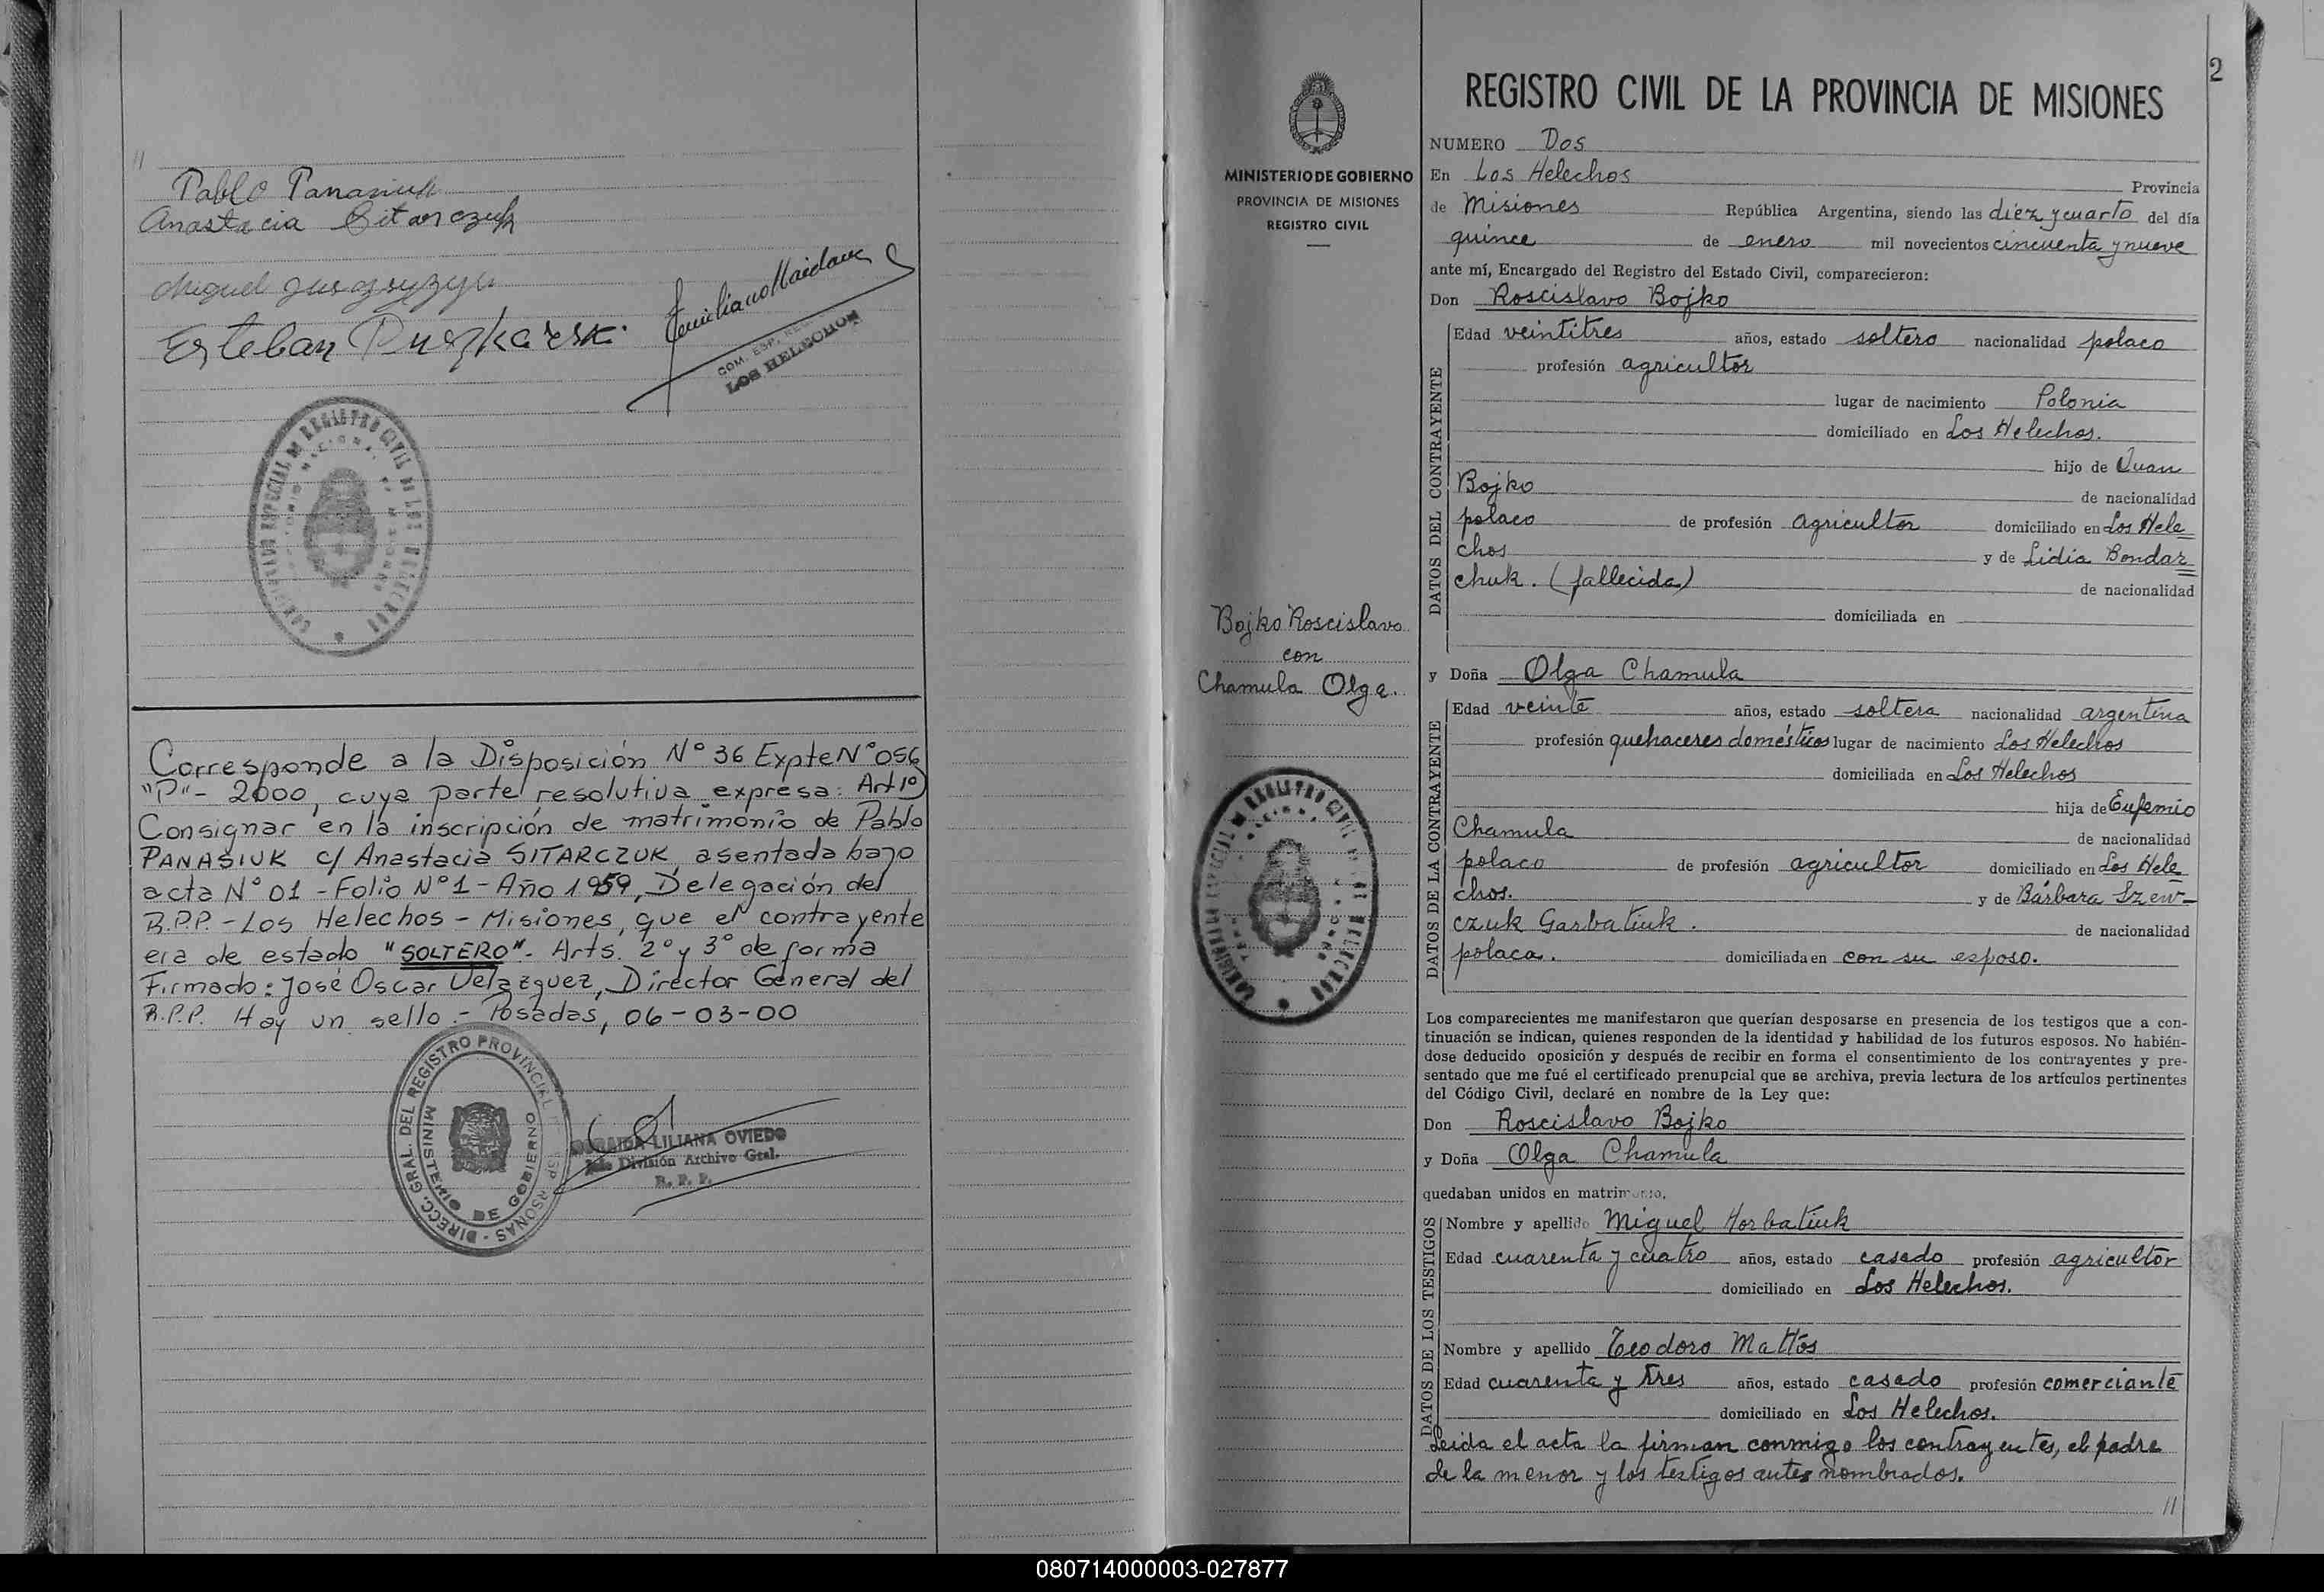 //
Pablo Panasiuk
Anastacia Sitarczuk
Miguel
Esteban
COM. ESP. REG.
LOS HELECHOS
Corresponde a la Disposición N° 36 Expte N° 056
"P"- 2000, cuya parte resolutiva expresa: Art 1°)
Consignar en la inscripción de matrimonio de Pablo
PANASIUK c/ Anastacia SITARCZUK, asentada bajo
acta N° 01 - Folio N° 1 - Año 1959, Delegación del
R.P.P. - Los Helechos - Misiones, que el contrayente
era de estado "SOLTERO". Arts. 2° y 3° de forma
Firmado: José Oscar Velazquez, Director General del
R.P.P. Hay un sello.- Posadas, 06-03-00
DIRECC. GRAL. DEL REGISTRO PROVINCIAL
MINISTERIO DE GOBIERNO
LILIANA OVIEDO
División Archivo Gral.
R. P. P.
2
MINISTERIO DE GOBIERNO
PROVINCIA DE MISIONES
REGISTRO CIVIL
Bojko Roscislavo
con
Chamula Olga.
REGISTRO CIVIL DE LA PROVINCIA DE MISIONES
NUMERO Dos
En Los Helechos Provincia
de Misiones República Argentina, siendo las diez y cuarto del día
quince de enero mil novecientos cincuenta y nueve
ante mí, Encargado del Registro del Estado Civil, comparecieron:
Don Roscislavo Bojko
DATOS DEL CONTRAYENTE
Edad veintitres años, estado soltero nacionalidad polaco
profesión agricultor
lugar de nacimiento Polonia
domiciliado en Los Helechos.
hijo de Juan
Bojko de nacionalidad
polaco de profesión agricultor domiciliado en Los Hele
chos y de Lidia Bondar
chuk. (fallecida) de nacionalidad
domiciliada en
y Doña Olga Chamula
DATOS DE LA CONTRAYENTE
Edad veinte años, estado soltera nacionalidad argentina
profesión quehaceres domésticos lugar de nacimiento Los Helechos
domiciliada en Los Helechos
hija de Eufemio
Chamula de nacionalidad
polaco de profesión agricultor domiciliado en Los Hele
chos. y de Bárbara Szew-
czuk Garbatiuk. de nacionalidad
polaca. domiciliada en con su esposo.
Los comparecientes me manifestaron que querían desposarse en presencia de los testigos que a con-
tinuación se indican, quienes responden de la identidad y habilidad de los futuros esposos. No habién-
dose deducido oposición y después de recibir en forma el consentimiento de los contrayentes y pre-
sentado que me fué el certificado prenupcial que se archiva, previa lectura de los artículos pertinentes
del Código Civil, declaré en nombre de la Ley que:
Don Roscislavo Bojko
y Doña Olga Chamula
quedaban unidos en matrimonio.
DATOS DE LOS TESTIGOS
Nombre y apellido Miguel Horbatiuk
Edad cuarenta y cuatro años, estado casado profesión agricultor
domiciliado en Los Helechos.
Nombre y apellido Teodoro Mattos
Edad cuarenta y tres años, estado casado profesión comerciante
domiciliado en Los Helechos.
Leida el acta la firman conmigo los contrayentes, el padre
de la menor y los testigos antes nombrados.
//
080714000003-027877